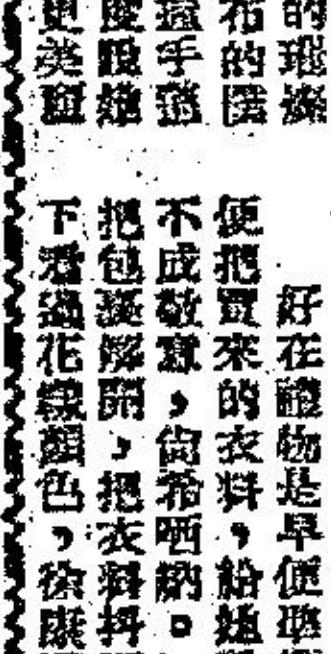 的璀璨
布的
手
她
更美麗
好在禮物是早便準
便把買來的衣料，給她
不成敬意，尚希哂納。
把包裹解開，把衣料抖
下看過花樣顏色，徐康